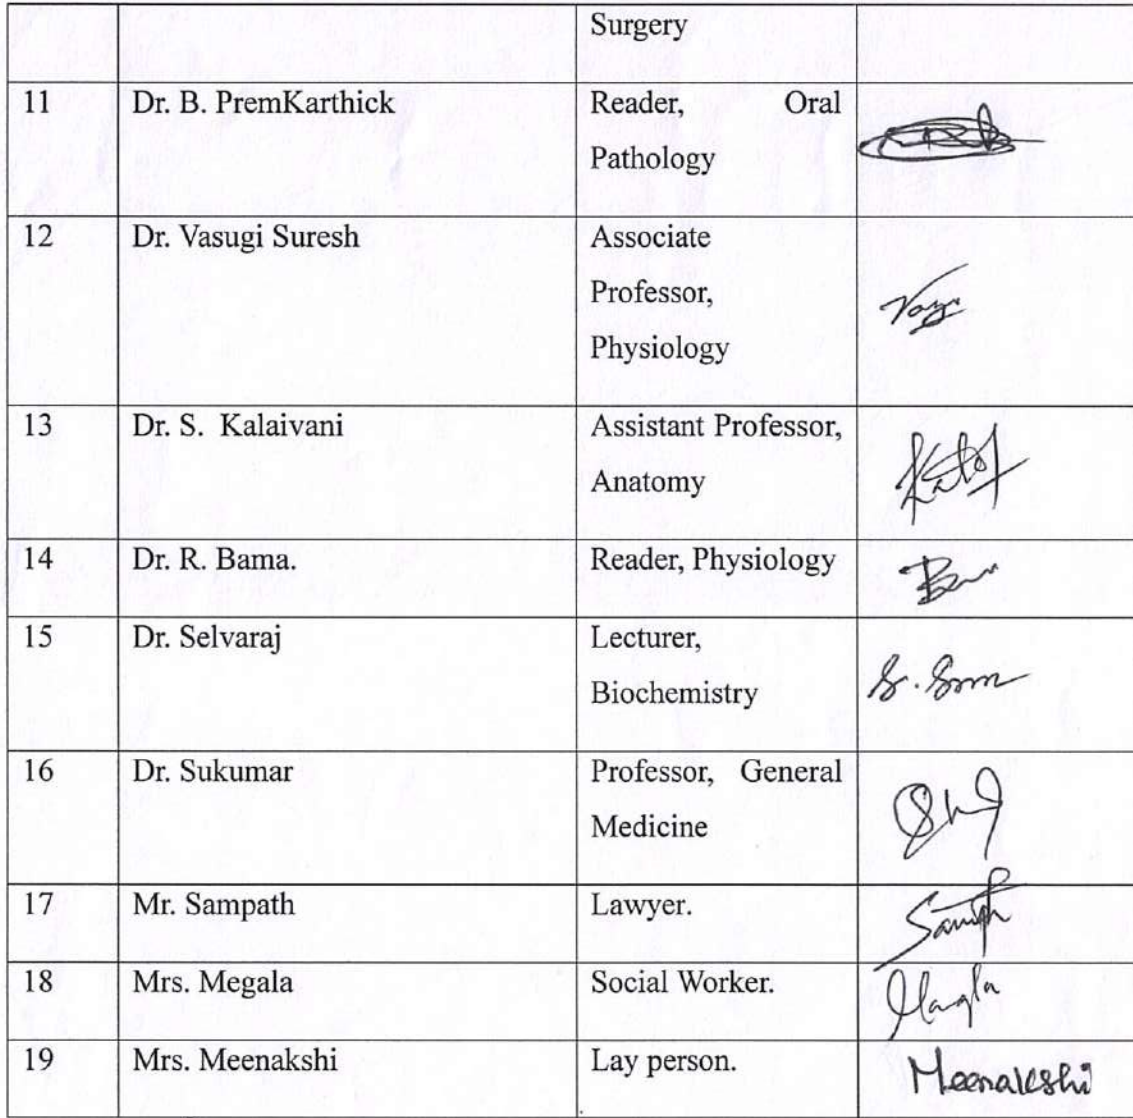 Surgery
11 Dr. B. PremKarthick Reader, Oral
Pathology
12 Dr. Vasugi Suresh Associate
Professor,
Physiology
13 Dr. S. Kalaivani Assistant Professor,
Anatomy
14 Dr. R. Bama. Reader, Physiology
15 Dr. Selvaraj Lecturer,
Biochemistry
16 Dr. Sukumar Professor, General
Medicine
17 Mr. Sampath Lawyer.
18 Mrs. Megala Social Worker.
19 Mrs. Meenakshi Lay person. Meenakshi